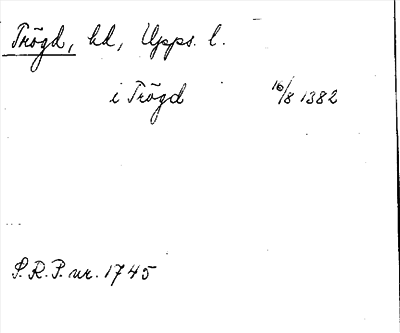 Trögd, hd, Upps. l.
i Trögd 16/8 1382
S.R.P. nr. 1745